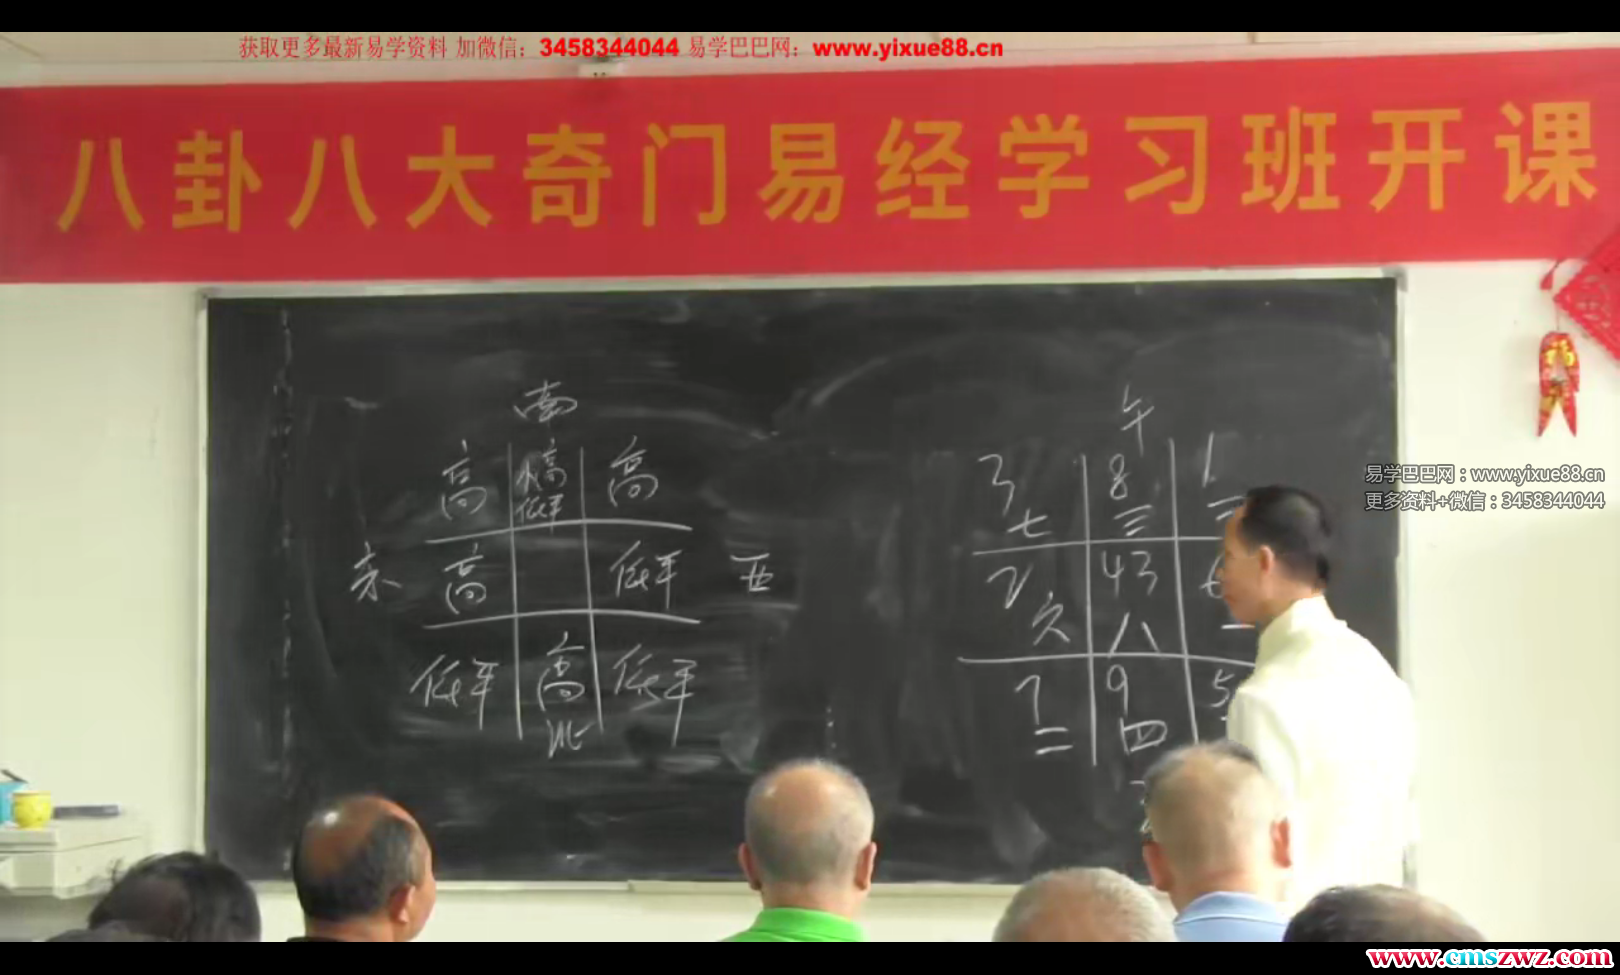 获取更多最新易学资料 加微信：3458344044 易学巴巴网：www.yixue88.cn
八卦八大奇门易经学习班开课
南
高 高
低平
东 高 低平 西
低平 高 低平
北
午
3 8 1
七 三
2 43
六 八
7 9 5
二 四
易学巴巴网：www.yixue88.cn
更多资料+微信：3458344044
福
www.cmszwz.com